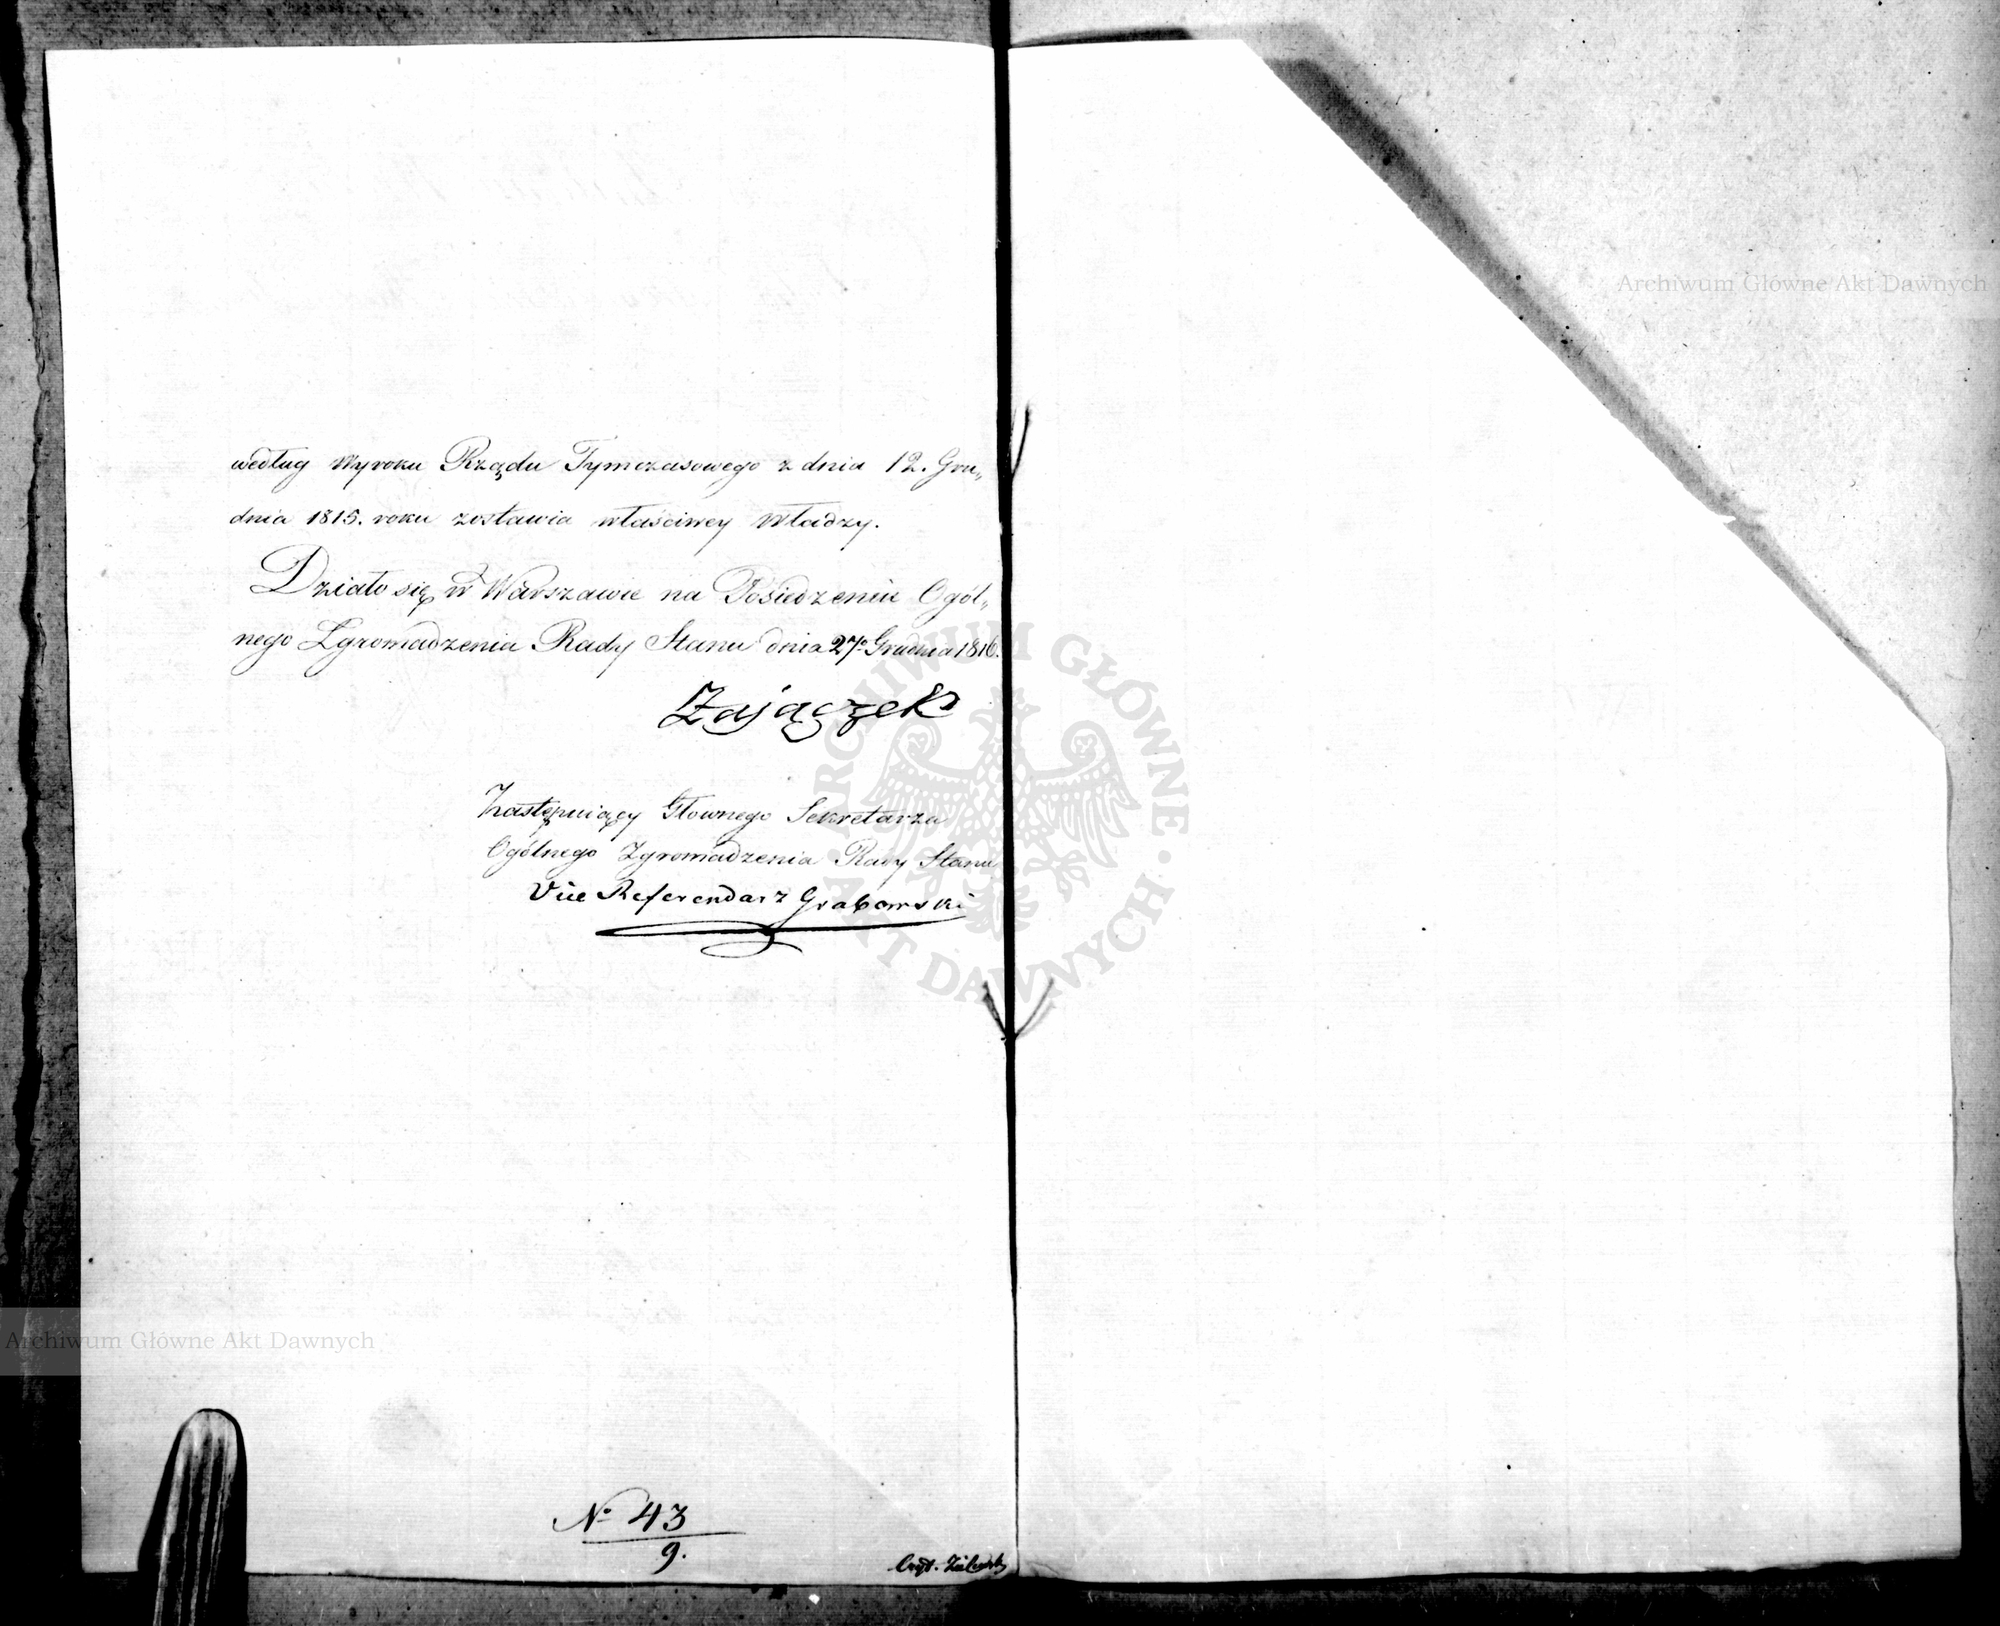 według Wyroku Rządu Tymczasowego z dnia 12. Gru„
dnia 1815. roku zostawia właściwey Władzy.
Działo się w Warszawie na Posiedzeniu Ogól„
nego Zgromadzenia Rady Stanu dnia 27º Grudnia 1816.
Zajączek
Zastępuiący Głownego Sekretarza
Ogólnego Zgromadzenia Rady Stanu
Vice Referendarz Grabowski
Nº 43
9.
Archiwum Główne Akt Dawnych
Archiwum Główne Akt Dawnych
ARCHIWUM GŁÓWNE AKT DAWNYCH